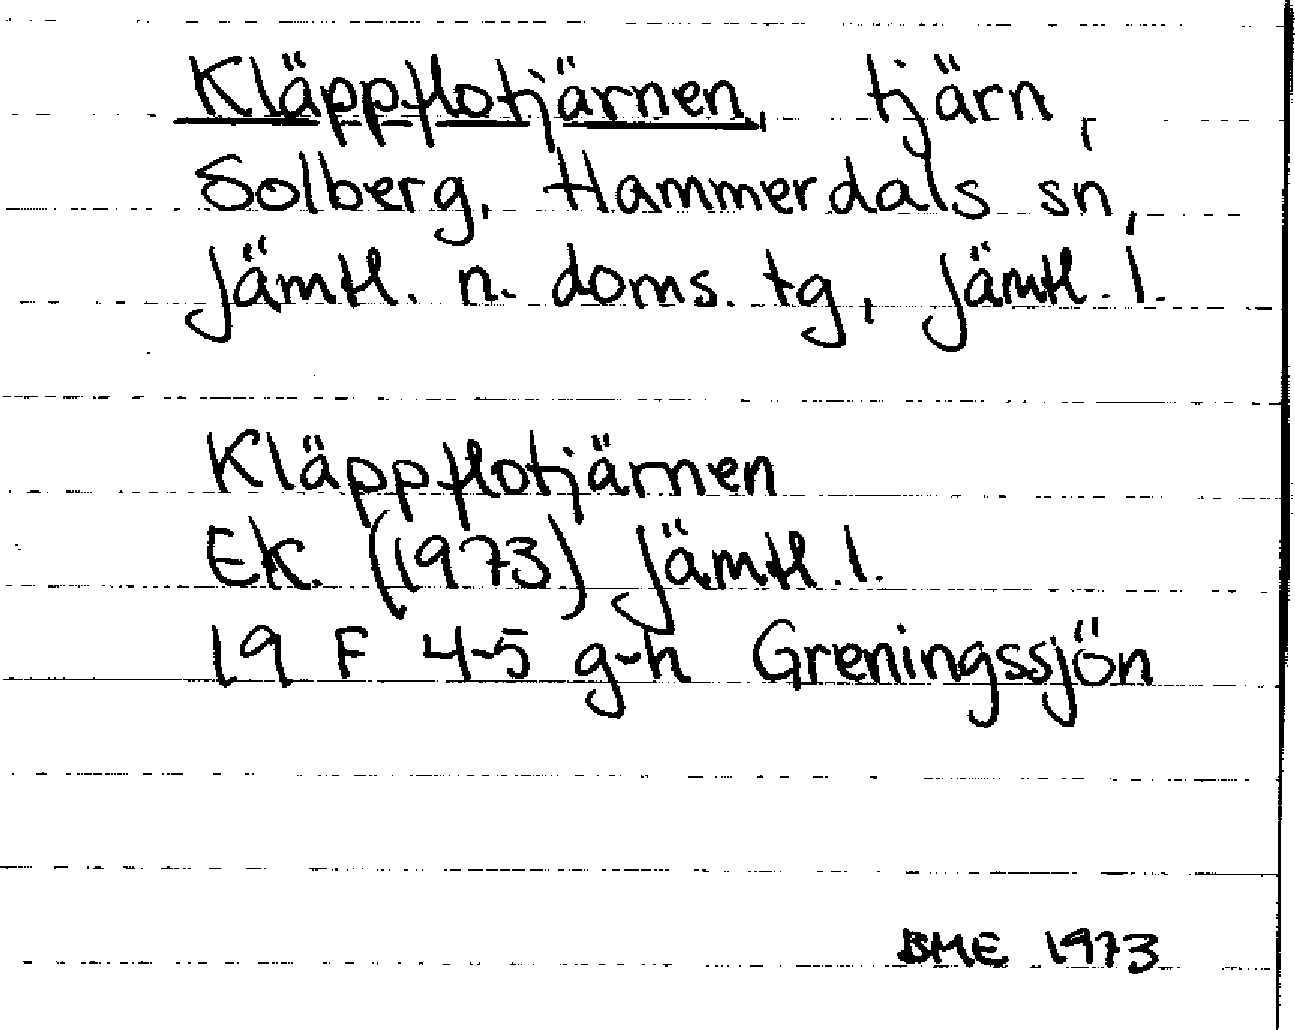 Kläppflotjärnen, tjärn,
Solberg, Hammerdals sn,
Jämtl. n. doms. tg, Jämtl. l.
Kläppflotjärnen
Ek. (1973) Jämtl. l.
19 F 4-5 g-h Greningssjön
BME 1973